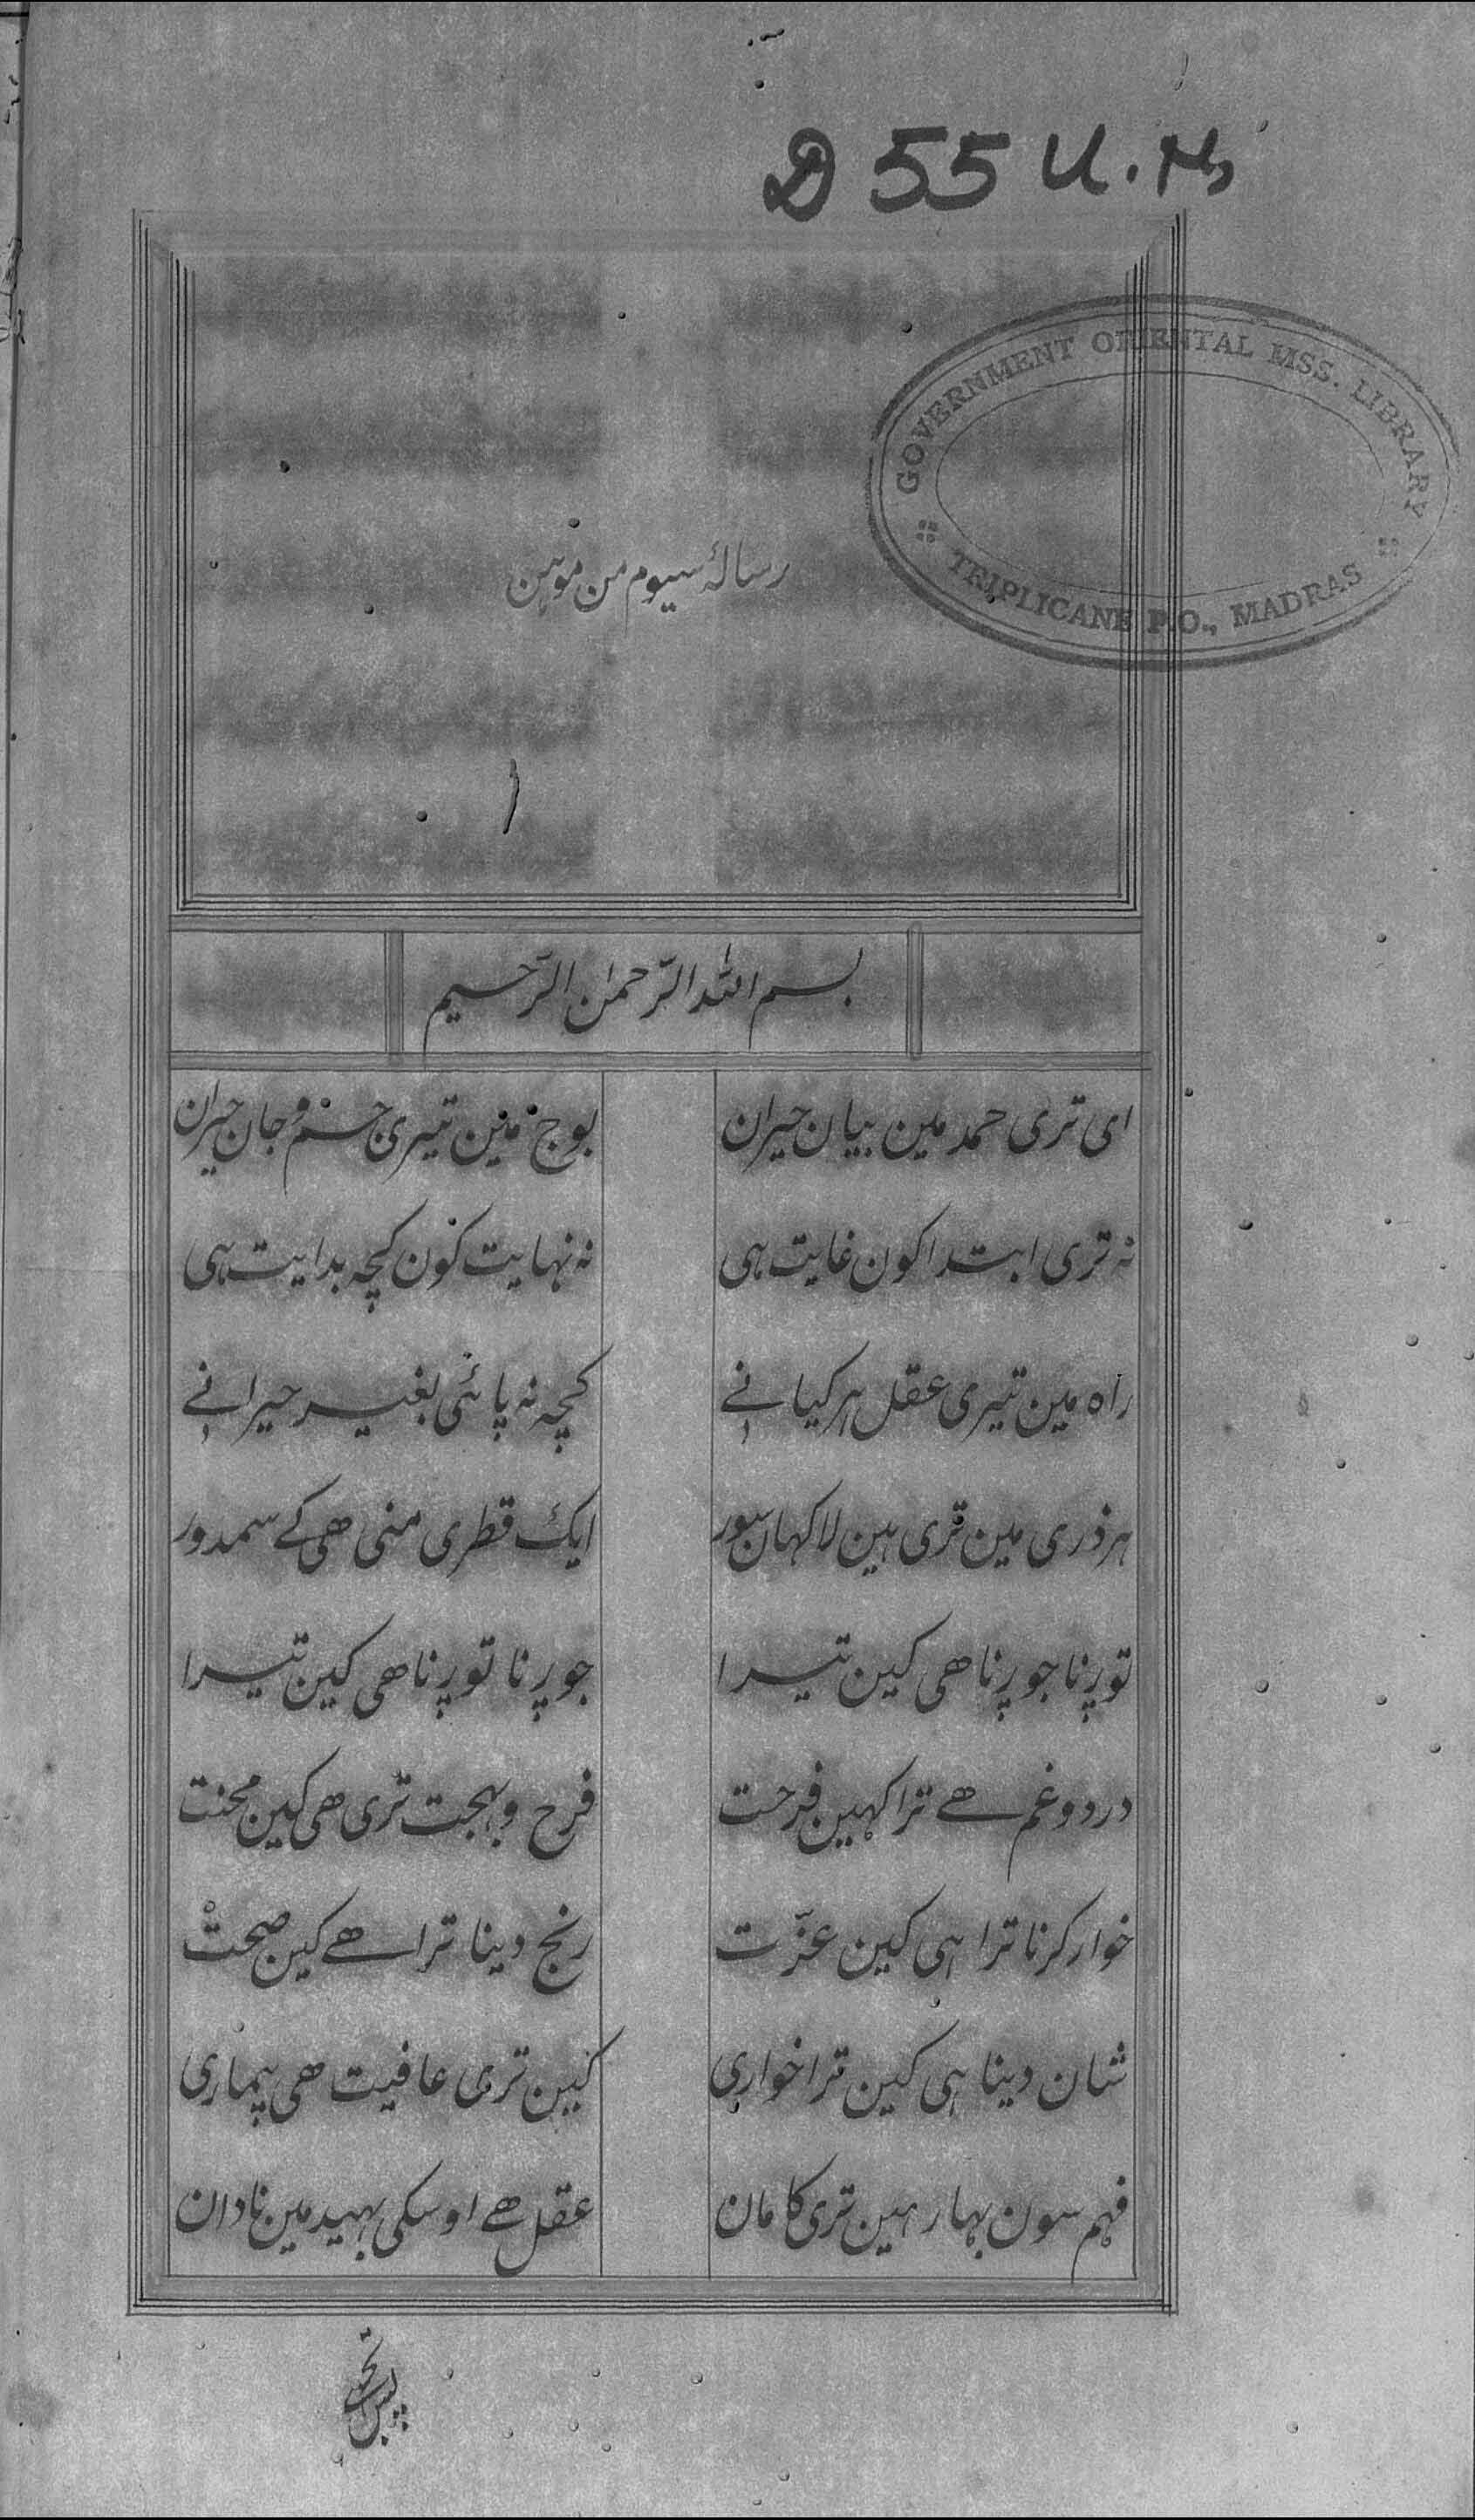 D 55 U. Ms
GOVERNMENT ORIENTAL MSS. LIBRARY
TRIPLICANE P.O., MADRAS
رسالۂ سیوم من موہن
بسم اللہ الرّحمٰن الرّحیم
ای تری حمد مین بیان حیران
بوج مین تیری جسم و جان حیران
نہ تری ابتدا کون غایت ہی
نہ نہایت کون کچہ بدایت ہی
راہ مین تیری عقل ہر کیانے
کچہ نہ پائی بغیر حیرانے
ہر ذری مین تری ہین لاکہان سور
ایک قطری منی ھی کے سمدور
توڑنا جوڑنا ھی کین تیرا
جوڑنا توڑنا ھی کین تیرا
درد و غم ھے ترا کہین فرحت
فرح و بہجت تری ھی کین محنت
خوار کرنا ترا ہی کین عزّت
رنج دینا ترا ھے کین صحت
شان دینا ہی کین ترا خواری
کین تری عافیت ھی بیماری
فہم سون بہار ہین تری کامان
عقل ھے اوسکی بہید مین نادان